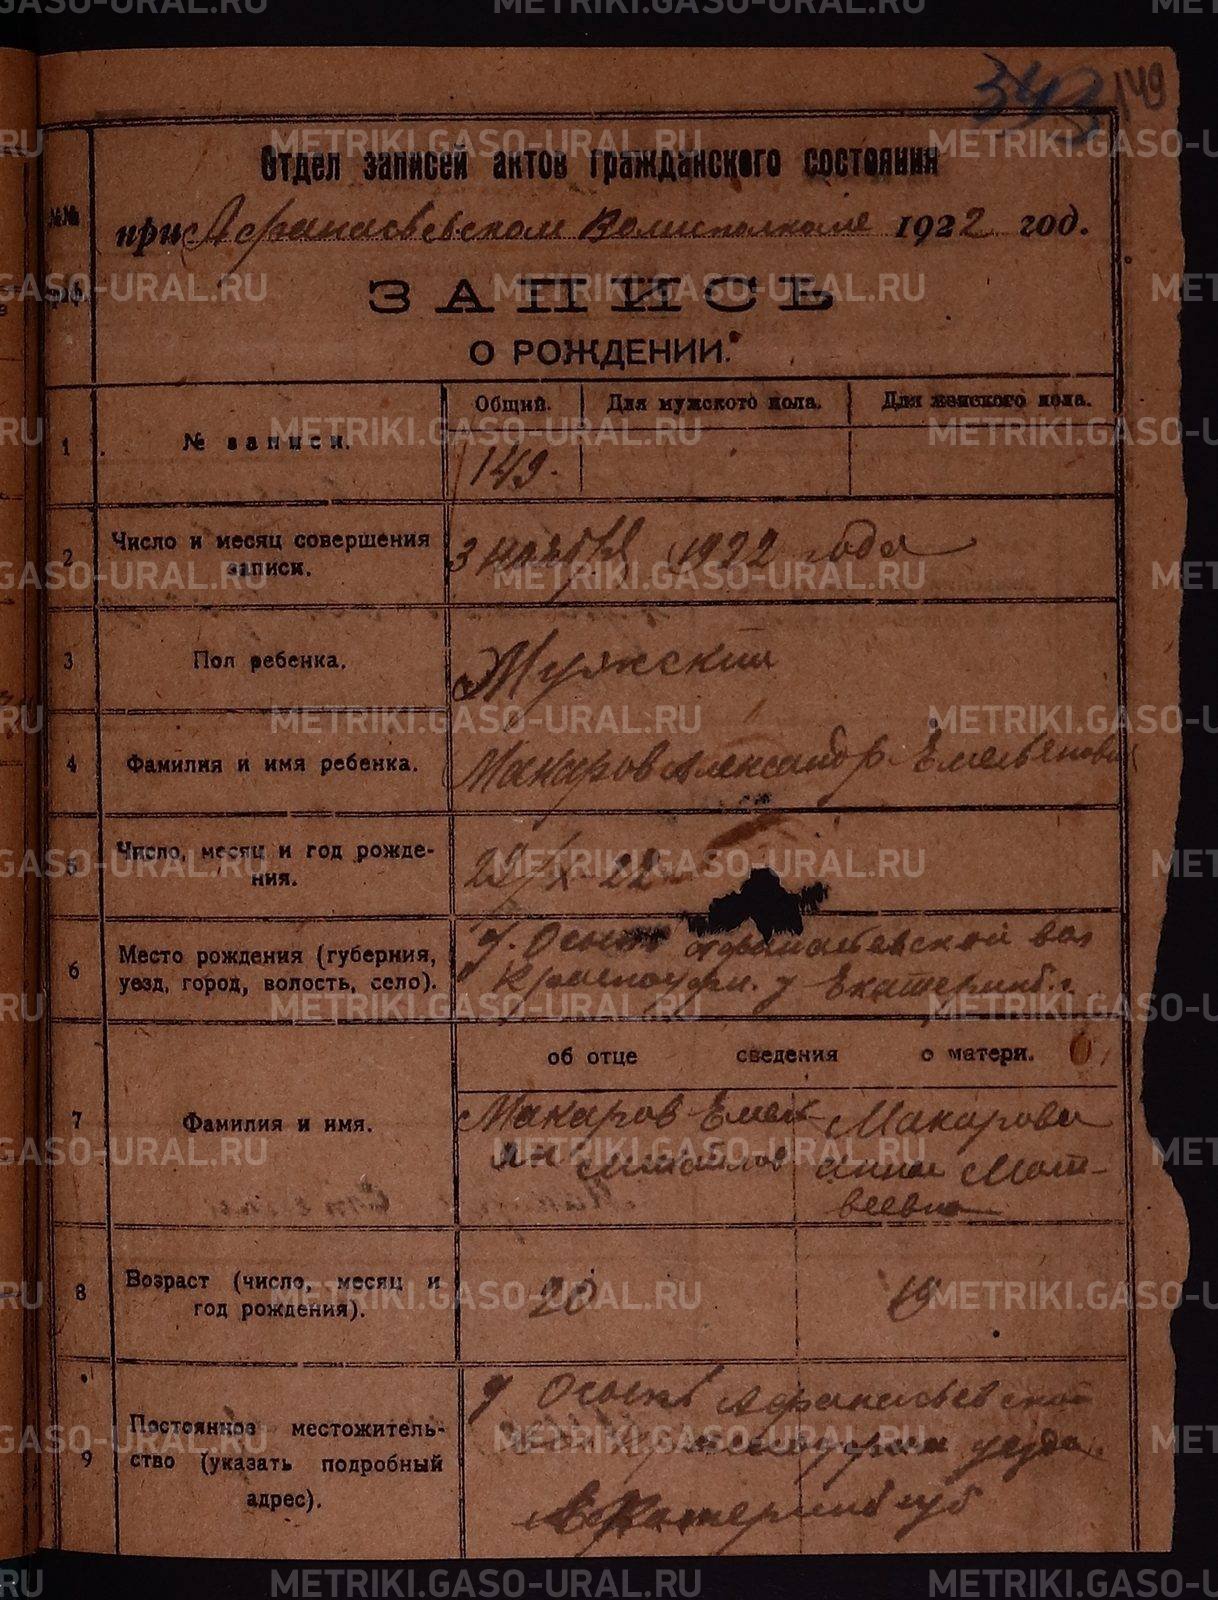 343 149
Отдел записей актов гражданского состояния
№№
при Афанасьевском Волисполкоме 1922 год.
ЗАПИСЬ
О РОЖДЕНИИ.
Общий. Для мужского пола. Для женского пола.
1 № записи. 149.
2 Число и месяц совершения записи. 3 ноября 1922 года
3 Пол ребенка. Мужский
4 Фамилия и имя ребенка. Макаров Александр Емельянович
5 Число, месяц и год рожде-
ния. 22/X-22
6 Место рождения (губерния, д. Осыпь Афанасьевской вол
уезд, город, волость, село). Красноуфим. у Екатеринб. г.
об отце сведения о матери.
7 Фамилия и имя. Макаров Емель Макарова
ян Михайлов Анна Мат-
веевна
8 Возраст (число, месяц и
год рождения). 20 19
9 Постоянное местожитель-
ство (указать подробный
адрес).
д Осыпь Афанасьевской
вол Красноуфим уезда
Екатеринб губ
METRIKI.GASO-URAL.RU